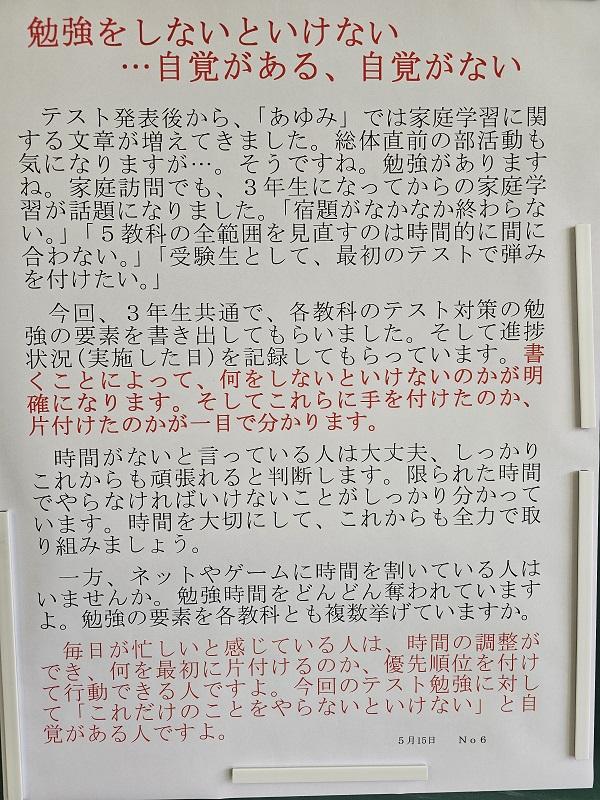 勉強をしないといけない
…自覚がある、自覚がない
テスト発表後から、「あゆみ」では家庭学習に関
する文章が増えてきました。総体直前の部活動も
気になりますが…。そうですね。勉強があります
ね。家庭訪問でも、３年生になってからの家庭学
習が話題になりました。「宿題がなかなか終わらな
い。」「５教科の全範囲を見直すのは時間的に間に
合わない。」「受験生として、最初のテストで弾み
を付けたい。」
今回、３年生共通で、各教科のテスト対策の勉
強の要素を書き出してもらいました。そして進捗
状況(実施した日)を記録してもらっています。書
くことによって、何をしないといけないのかが明
確になります。そしてこれらに手を付けたのか、
片付けたのかが一目で分かります。
時間がないと言っている人は大丈夫、しっかり
これからも頑張れると判断します。限られた時間
でやらなければいけないことがしっかり分かって
います。時間を大切にして、これからも全力で取
り組みましょう。
一方、ネットやゲームに時間を割いている人は
いませんか。勉強時間をどんどん奪われています
よ。勉強の要素を各教科とも複数挙げていますか。
毎日が忙しいと感じている人は、時間の調整が
でき、何を最初に片付けるのか、優先順位を付け
て行動できる人ですよ。今回のテスト勉強に対し
て「これだけのことをやらないといけない」と自
覚がある人ですよ。
５月15日　Ｎｏ６